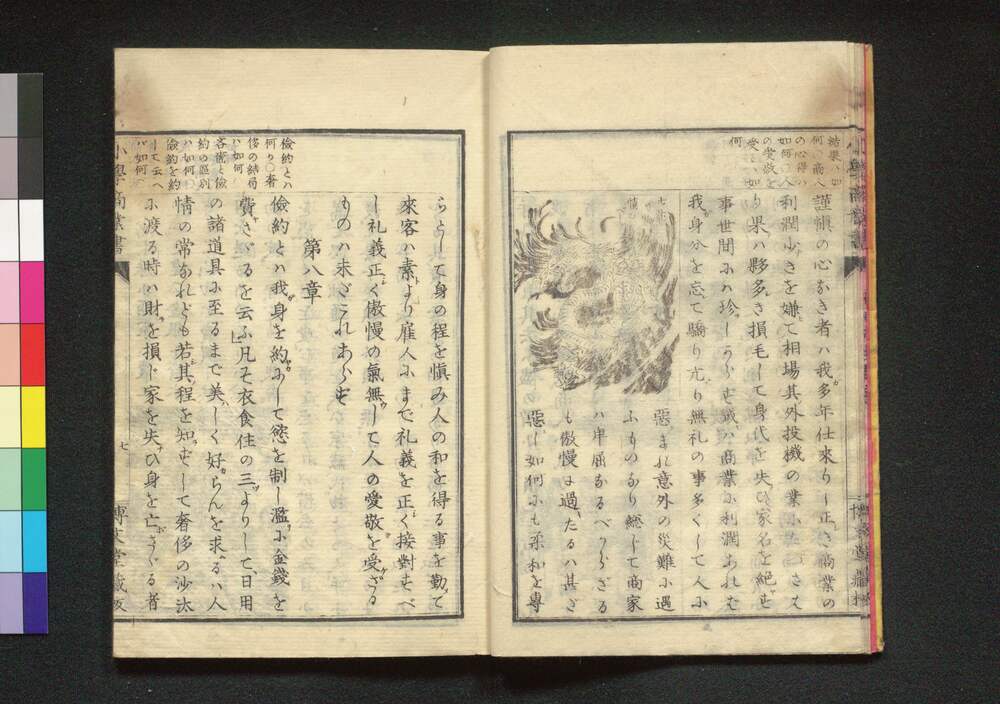 結果ハ如
何○商人
の心得ハ
如何○人
の愛敬を
受るハ如
何
謹愼の心なき者ハ我多年仕來りし正き商業の
利潤少きを嫌て相場其外投機の業に
り果ハ夥多き損毛して身代を失ひ家名を絶す
事世間にハ珍しからず或ハ商業に利潤あれば
我身分を忘て驕り亢り無礼の事多くして人に
惡まれ意外の災難に遇
ふものなり総じて商家
ハ卑屈なるべからざる
も傲慢に過たるハ甚ざ
惡し如何にも柔和を專
らとして身の程を愼み人の和を得る事を勤て
來客ハ素より雇人にまで礼義を正く接對すべ
し礼義正く傲慢の氣無して人の愛敬を受ざる
ものハ未ざこれあらず
儉約とハ
何り○奢
侈の結局
ハ如何○
吝嗇と儉
約の區別
ハ如何○
儉約を約
して云へ
バ如何
第八章
儉約とハ我身を約にして慾を制し濫に金錢を
費さゞるを云ふ凡そ衣食住の三よりして日用
の諸道具に至るまで美しく好らんを求るハ人
情の常なれども若其程を知ずして奢侈の沙汰
に渡る時ハ財を損じ家を失ひ身を亡さゞる者
小學商業書
七
博文堂藏版